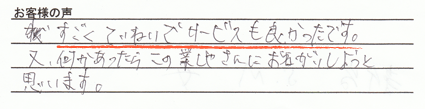 お客様の声
すごくていねいでサービスも良かったです。
又、何かあったらこの業しゃさんにお願いしようと
思います。